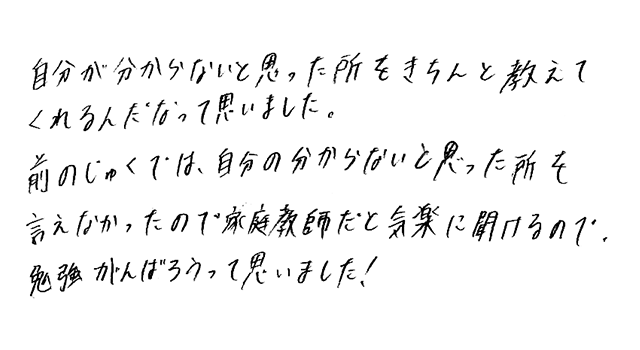 自分が分からないと思った所をきちんと教えて
くれるんだなって思いました。
前のじゅくでは、自分の分からないと思った所を
言えなかったので家庭教師だと気楽に聞けるので、
勉強がんばろうって思いました!